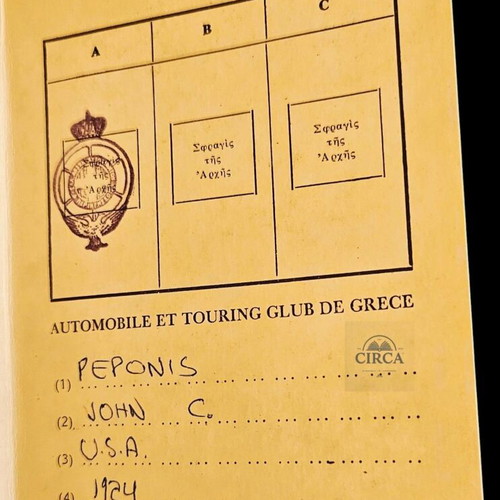 A B C
Σφραγὶς
τῆς
Ἀρχῆς
Σφραγὶς
τῆς
Ἀρχῆς
Σφραγὶς
τῆς
Ἀρχῆς
AUTOMOBILE ET TOURING GLUB DE GRECE
CIRCA
(1) PEPONIS
(2) JOHN C.
(3) U.S.A.
(4) 1924